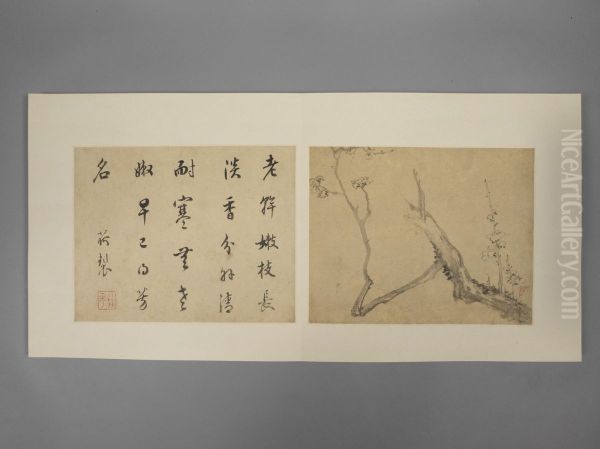 老幹嫩枝長
淡香分外清
耐寒無老
嫩早已得芳
名
製
NiceArtGallery.com